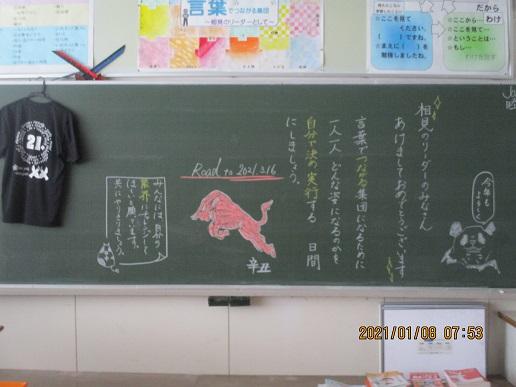 言葉
でつながる集団
～相見のリーダーとして～
☆ここを見て
ください。
(　　)ですね。
☆まえに(　　)を
勉強しましたね。
だから
☆ここから…わけ
☆ここを見て…
☆ということは…
☆もし…
わけを話す
相見のリーダーのみなさん
あけましておめでとうございます
言葉でつながる集団になるために
一人一人どんな姿になるのかを
自分で決め実行する　日間
にしましょう。
今年も
よろしく
Road to 2021.3.16
辛丑
みんなには、自分の
限界にチャレンジして
ほしいと願っています。
共にやりきりましょう。
21.
2021/01/08 07:53